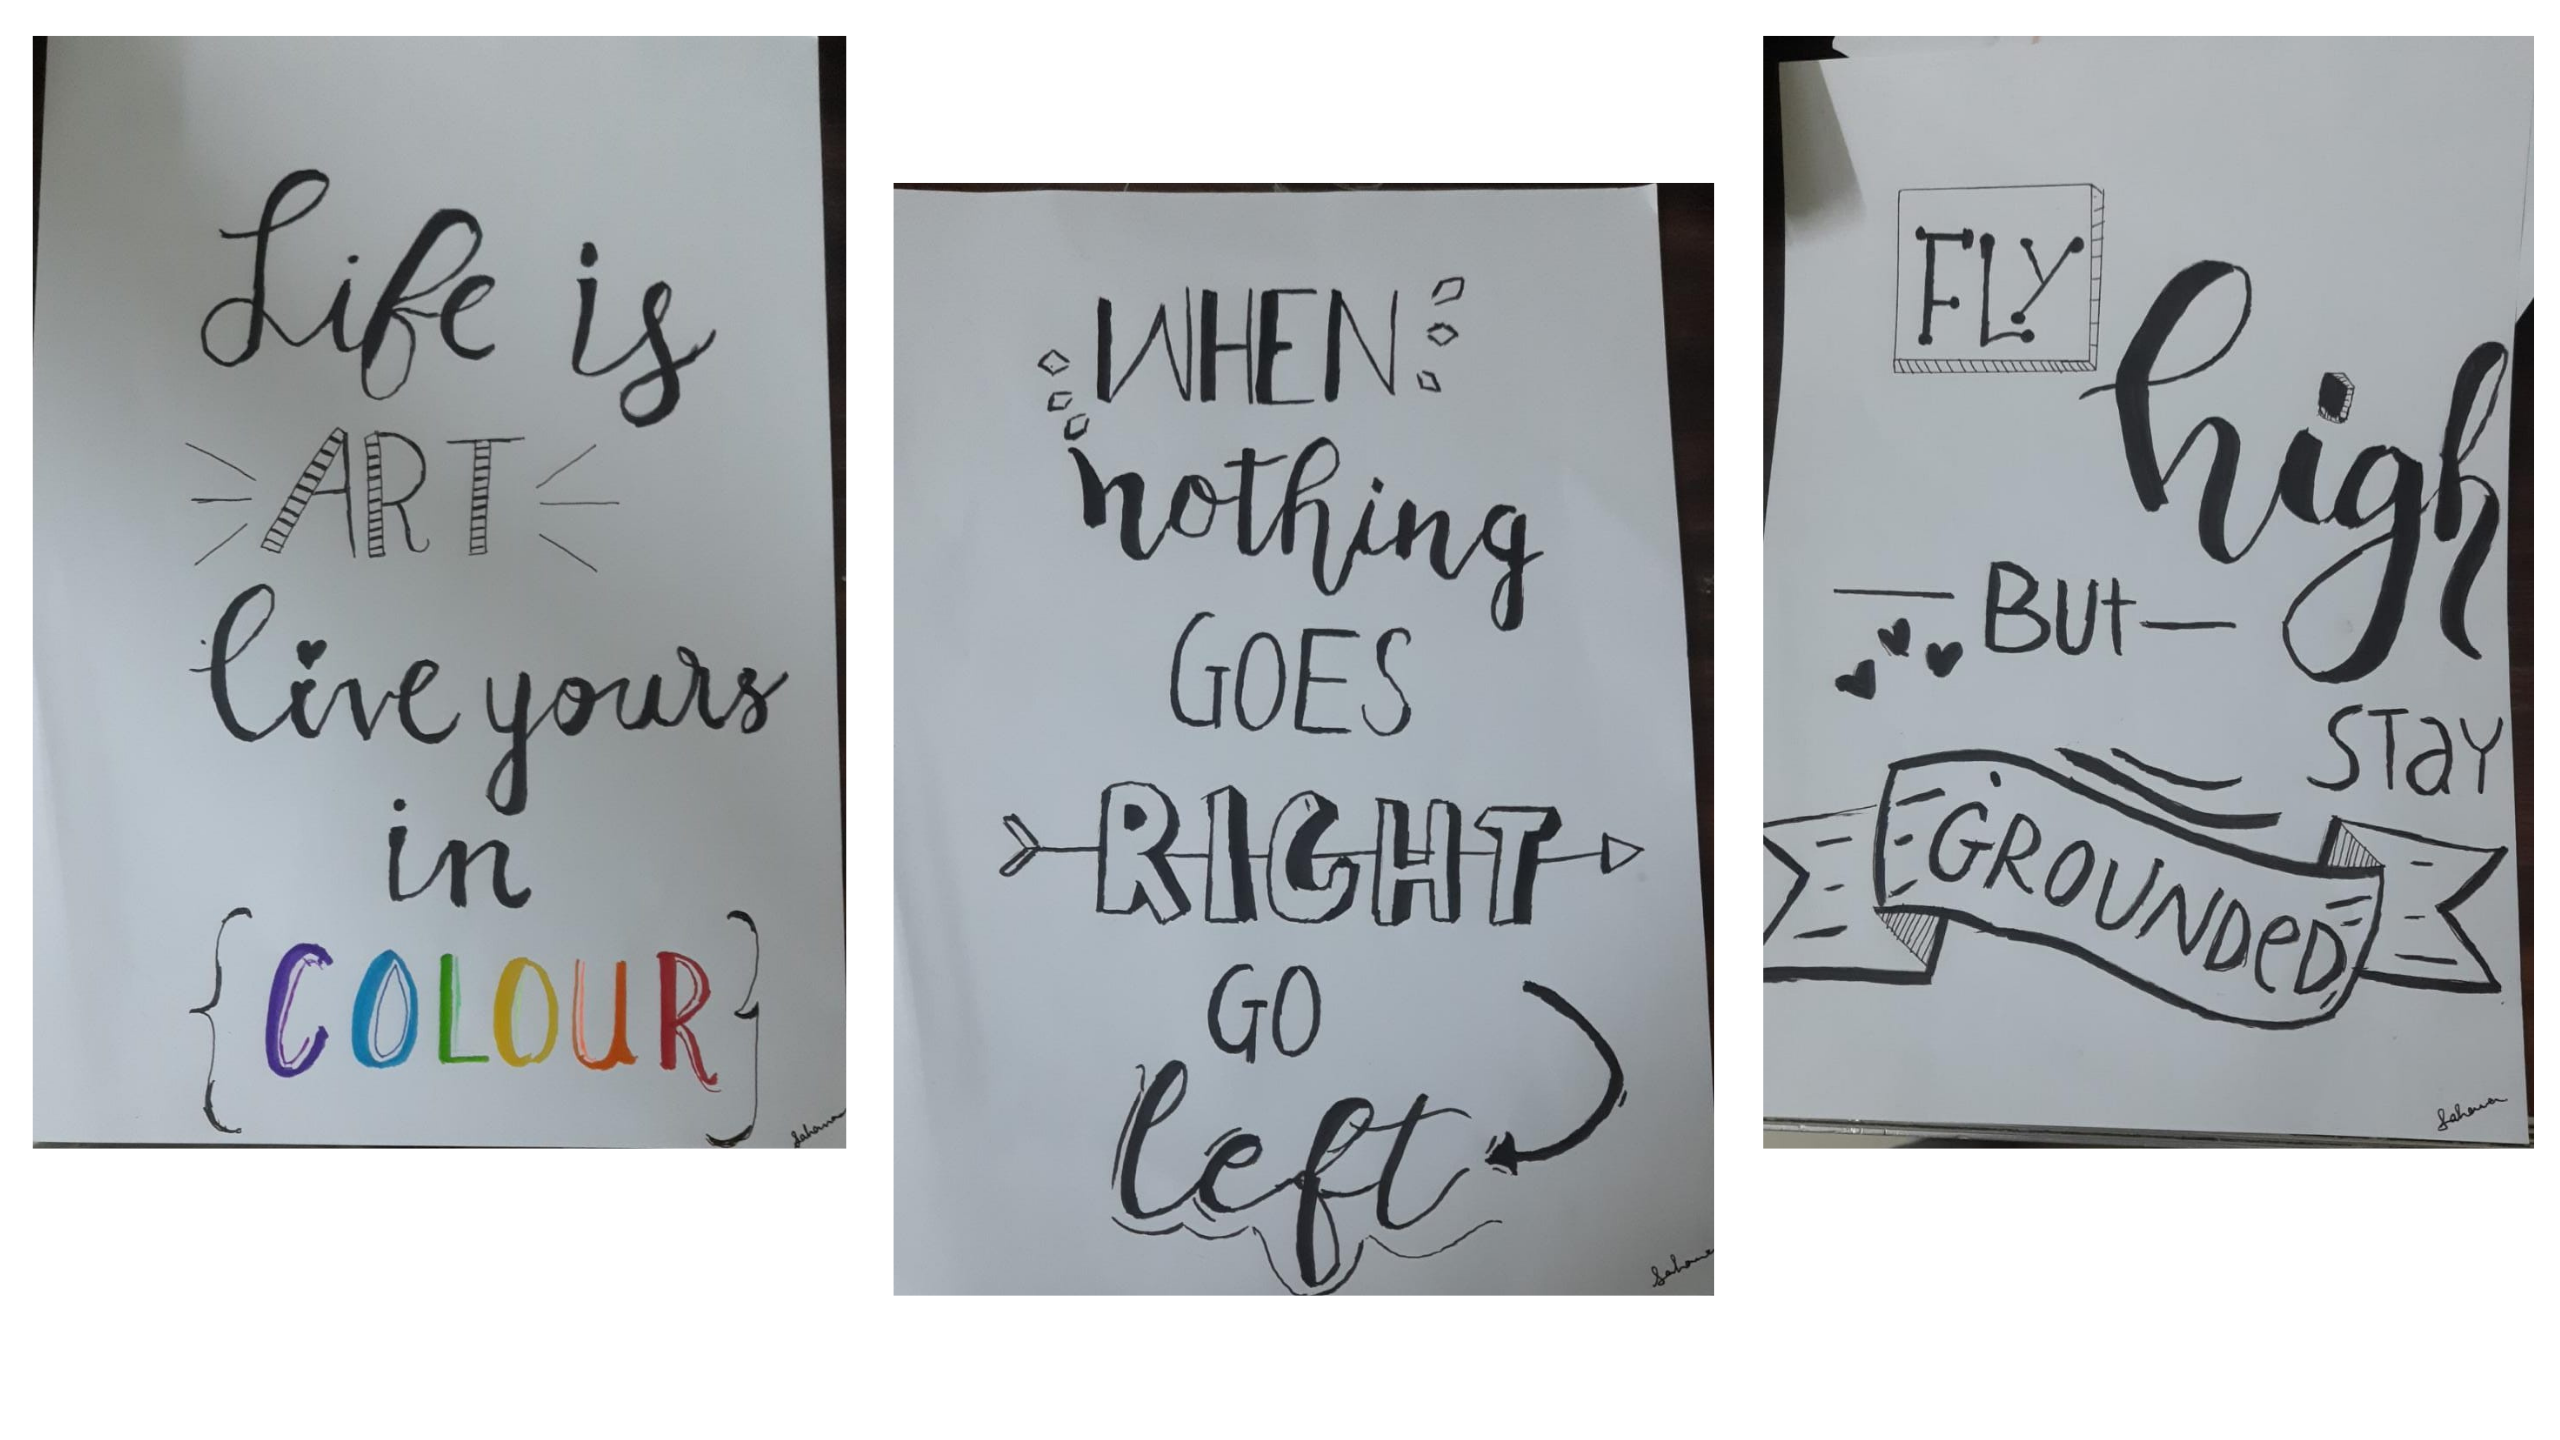 Life is
ART
live yours
in
{COLOUR}
Sahana
WHEN
nothing
GOES
RIGHT
GO
left
Sahana
FLY
high
BUt
STaY
GROUNDeD
Sahana